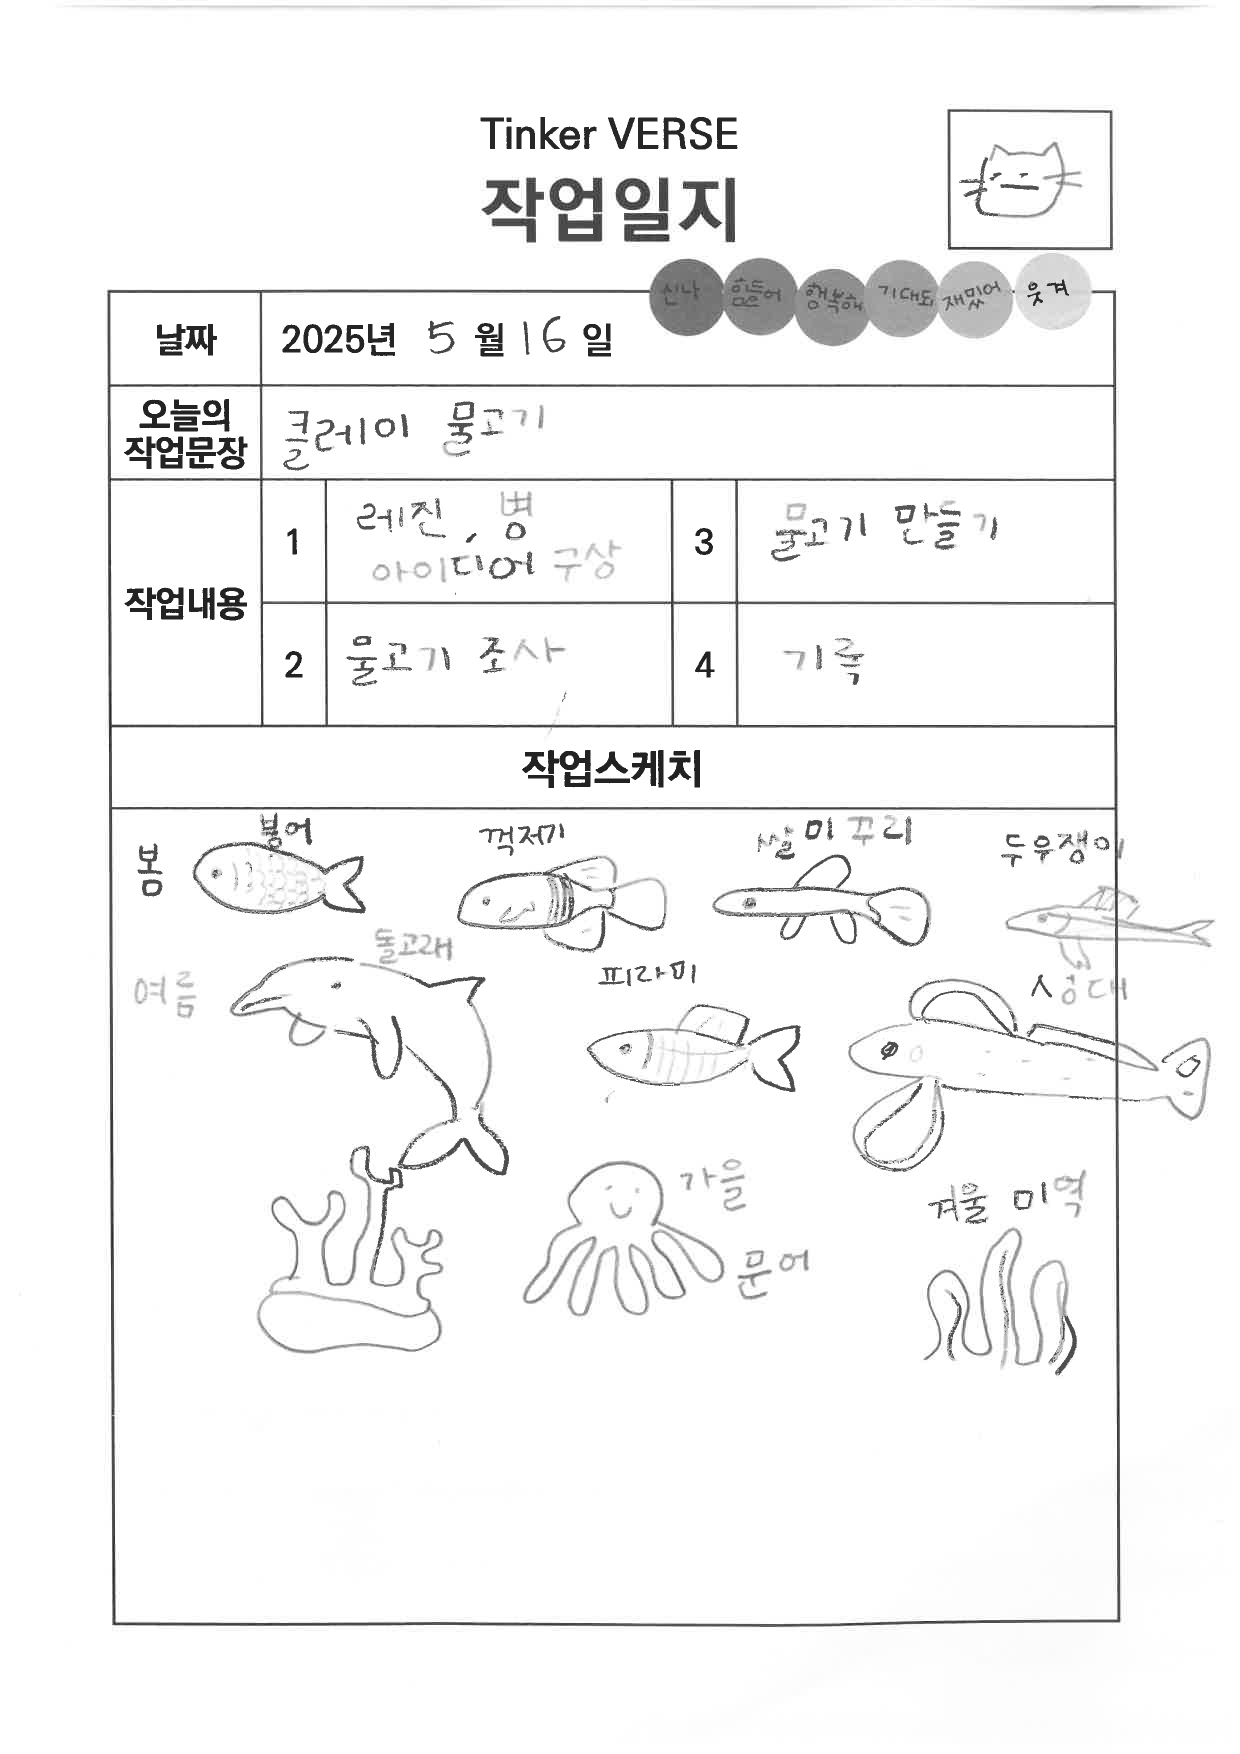 Tinker VERSE
작업일지
신나 힘들어 행복해 기대돼 재밌어 웃겨
날짜 2025년 5월 16일
오늘의 작업문장 클레이 물고기
작업내용
1 레진, 병
아이디어 구상
2 물고기 조사
3 물고기 만들기
4 기록
작업스케치
봄 붕어 꺽저기 쌀미꾸리 두우쟁이
여름 돌고래 피라미 성대
가을
문어
겨울 미역